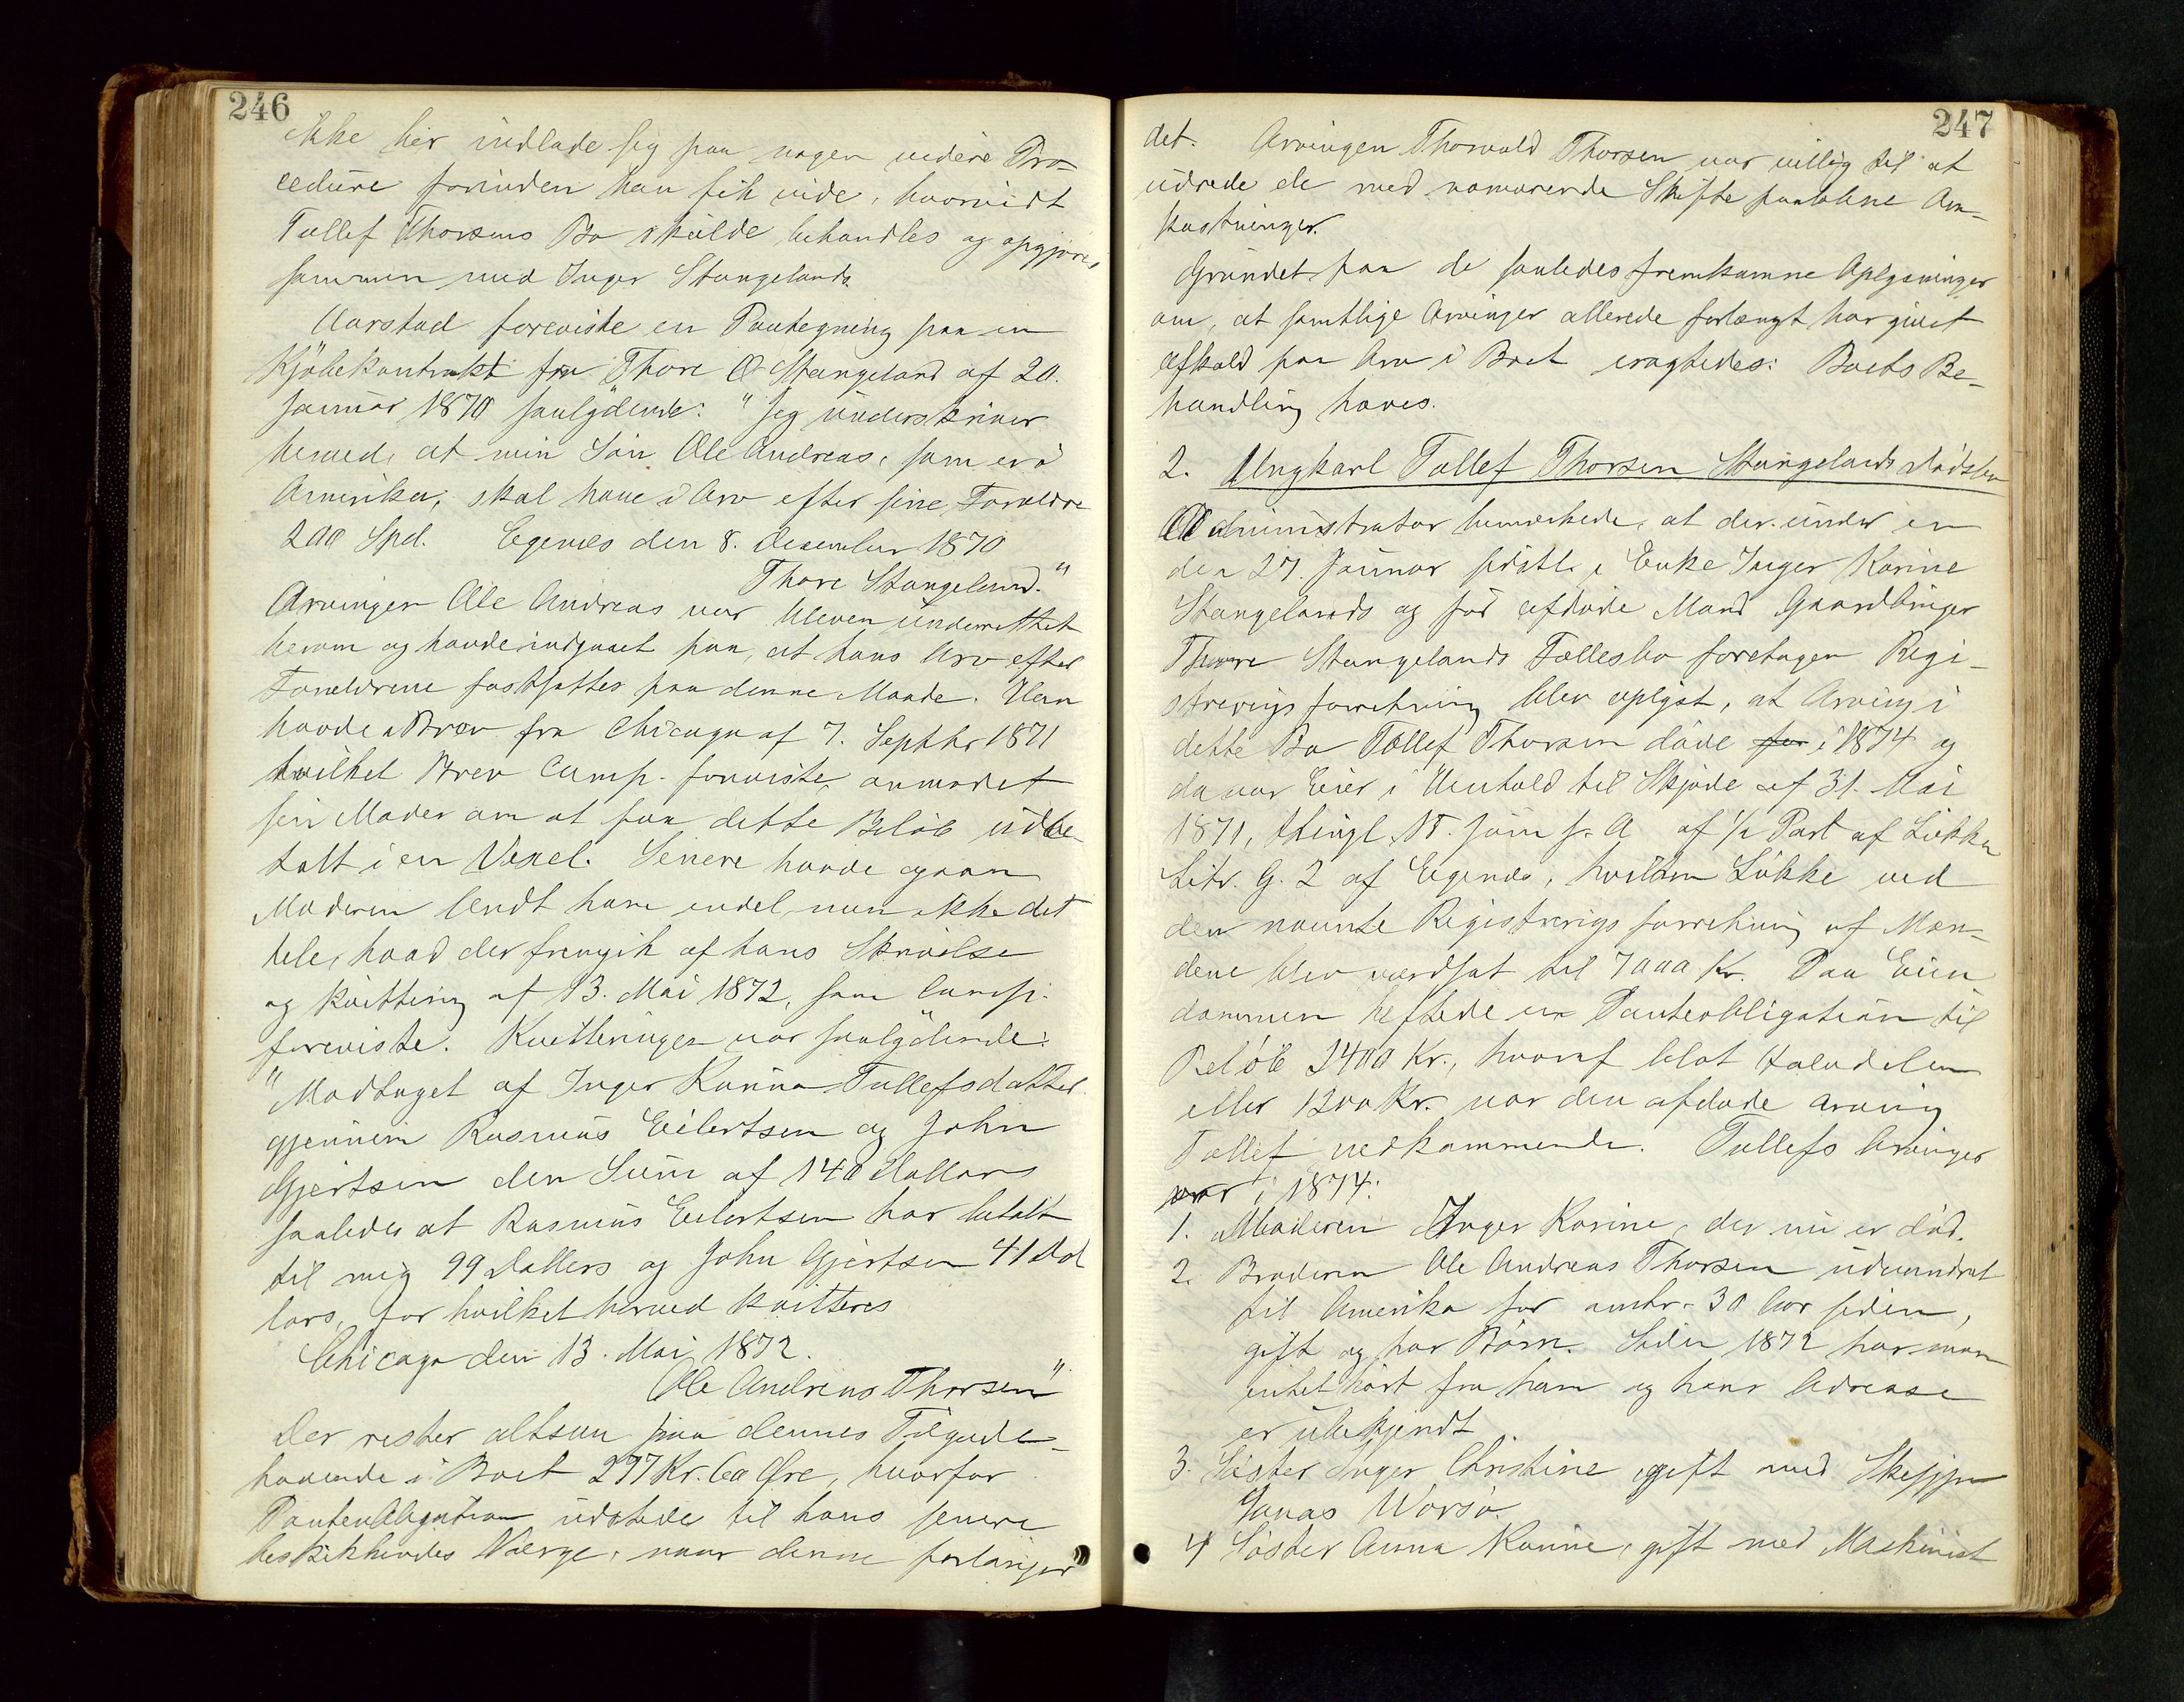 246
ikke her indlade sig paa nogen videre Pro-
cedure forinden han fik vide, hvorvidt
Tollef Thorsens Bo skulde behandles og opgjøres
sammen med Inger Stangelands.
Aarstad foreviste en Paategning paa en
Kjøbekontrakt fra Thore O Stangeland af 20.
Januar 1870 saalydende: "Jeg underskriver
herved, at min Søn Ole Andreas, som er i
Amerika, skal have i Arv efter sine Forældre
200 Spd. Egenes den 8. December 1870
Thore Stangeland."
Arvingen Ole Andreas var bleven underrettet
herom og havde indgaaet paa, at hans Arv efter
Forældrene fastsattes paa denne Maade. Han
havde i Brev fra Chicago af 7. Septbr 1871
hvilket Brev Comp. foreviste, anmodet
sin Moder om at faa dette Beløb udbe-
talt i en Vexel. Senere havde ogsaa
Moderen sendt ham endel, men ikke det
hele, hvad der fremgik af hans Skrivelse
og Kvittering af 13. Mai 1872, som Comp.
foreviste. Kvitteringen var saalydende:
"Modtaget af Inger Karina Tollefsdatter
gjennem Rasmus Eilertsen og John
Gjertsen den Sum af 140 Dollars
saaledes at Rasmus Eilertsen har betalt
til mig 99 Dollers og John Gjertsen 41 Dol
lars, for hvilket herved kvitteres
Chicago den 13. Mai 1872.
Ole Andreas Thorsen"
Der rester altsaa paa dennes Tilgode-
havende i Boet 277 Kr. 60 Øre, hvorfor
Panteobligation udstedes til hans senere
beskikkendes Værge, naar denne forlanger
247
det. Arvingen Thorvald Thorsen var villig til at
udrede de med nærværende Skifte paaløbne Om-
kostninger.
Grundet paa de saaledes fremkomne Oplysninger
om, at samtlige Arvinger allerede forlængst har givet
Afkald paa Arv i Boet eragtedes: Boets Be-
handling hæves.
2. Ungkarl Tollef Thorsen Stangelands Dødsbo
Administrator bemærkede, at der under en
den 27. Januar sidstl. i Enke Inger Karine
Stangelands og før afdøde Mand Gaardbruger
Thore Stangelands Fællesbo foretagen Regi-
streringsforretning blev oplyst, at Arving i
dette Bo Tollef Thorsen døde for i 1874 og
da var Eier i Henhold til Skjøde af 31. Mai
1871, thingl. 15. Juni s. A af 1/2 Part af Løkken
Litr. G. 2 af Egenes, hvilken Løkke ved
den nævnte Registreringsforretning af Mæn-
dene blev værdsat til 7000 Kr. Paa Eien
dommen heftede en Panteobligation til
Beløb 2400 Kr., hvoraf blot Halvdelen
eller 1200 Kr. var den afdøde Arving
Tollef vedkommende. Tollefs Arvinger
var i 1874:
1. Moderen Inger Karine, der nu er død.
2. Broderen Ole Andreas Thorsen udvandret
til Amerika for omtr. 30 Aar siden,
gift og har Børn. Siden 1872 har man
intet hørt fra ham og hans Adresse
er ubekjendt
3. Søster Inger Christine, gift med Skipper
Jonas Worsø.
4 Søster Anna Karine, gift med Maskinist